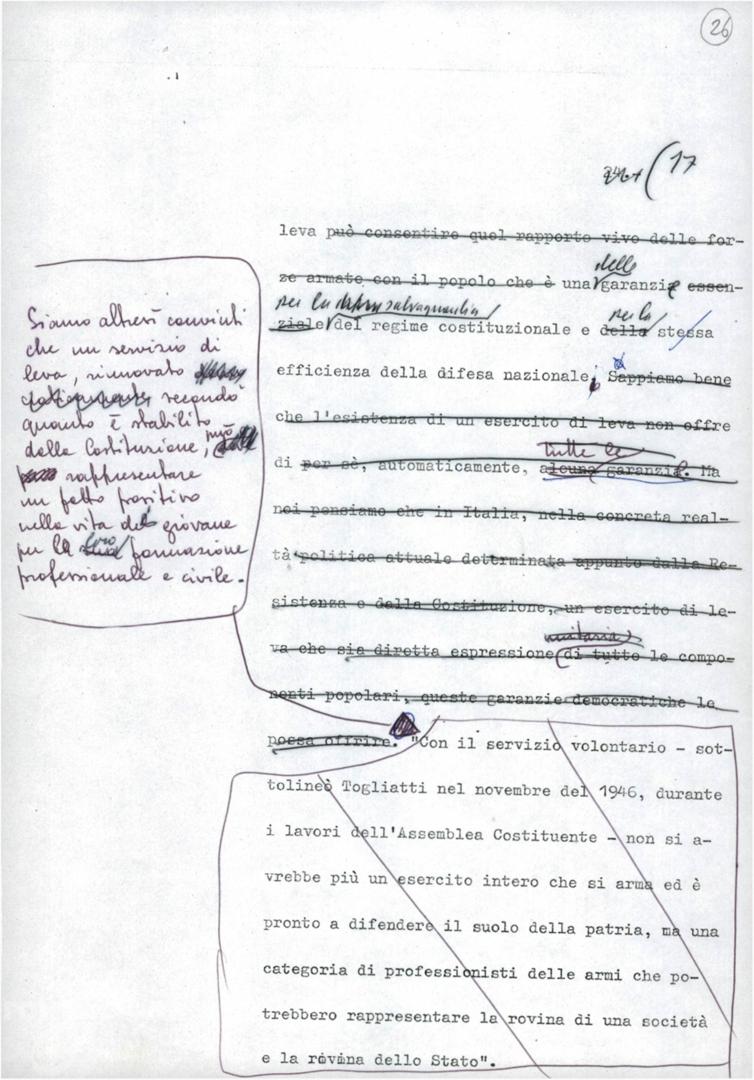 26
17
leva può consentire quel rapporto vivo delle for-
delle
ze armate con il popolo che è una garanzie essen-
per la salvaguardia per la
ziale del regime costituzionale e della stessa
efficienza della difesa nazionale. Sappiamo bene
che l'esistenza di un esercito di leva non offre
tutte le
di per sè, automaticamente, alcuna garanzia. Ma
noi pensiamo che in Italia, nella concreta real-
tà politica attuale determinata appunto dalla Re-
sistenza e dalla Costituzione, un esercito di le-
unitaria
va che sia diretta espressione di tutte le compo-
nenti popolari, queste garanzie democratiche le
possa offrire. "Con il servizio volontario - sot-
tolineò Togliatti nel novembre del 1946, durante
i lavori dell'Assemblea Costituente - non si a-
vrebbe più un esercito intero che si arma ed è
pronto a difendere il suolo della patria, ma una
categoria di professionisti delle armi che po-
trebbero rappresentare la rovina di una società
e la rovina dello Stato".
Siamo altresì convinti
che un servizio di
leva, rinnovato
secondo
quanto è stabilito
dalla Costituzione, può
rappresentare
un fatto positivo
nella vita del giovane
per la loro formazione
professionale e civile.